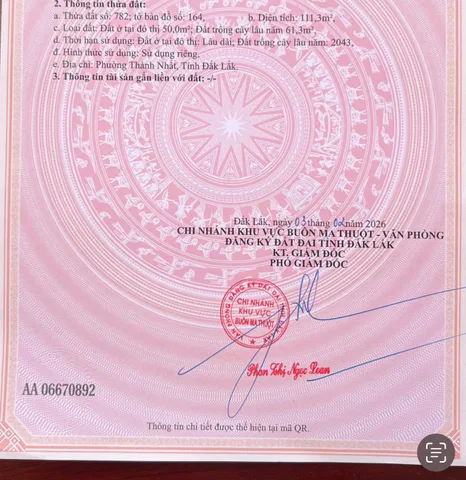 2. Thông tin thửa đất:
a. Thửa đất số: 782; tờ bản đồ số: 164, b. Diện tích: 111,3m²,
c. Loại đất: Đất ở tại đô thị 50,0m²; Đất trồng cây lâu năm 61,3m²,
d. Thời hạn sử dụng: Đất ở tại đô thị: Lâu dài; Đất trồng cây lâu năm: 2043,
đ. Hình thức sử dụng: Sử dụng riêng,
e. Địa chỉ: Phường Thành Nhất, Tỉnh Đắk Lắk.
3. Thông tin tài sản gắn liền với đất: -/-
Đắk Lắk, ngày 03 tháng 02 năm 2026
CHI NHÁNH KHU VỰC BUÔN MA THUỘT - VĂN PHÒNG
ĐĂNG KÝ ĐẤT ĐAI TỈNH ĐẮK LẮK
KT. GIÁM ĐỐC
PHÓ GIÁM ĐỐC
VĂN PHÒNG ĐĂNG KÝ ĐẤT ĐAI TỈNH ĐẮK LẮK
CHI NHÁNH
KHU VỰC
BUÔN MA THUỘT
Phan Thị Ngọc Loan
AA 06670892
Thông tin chi tiết được thể hiện tại mã QR.